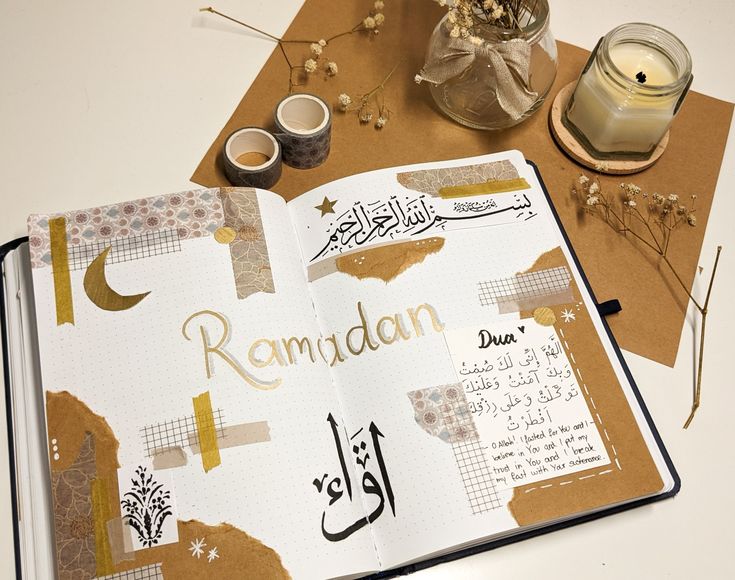 بِسْمِ اللهِ الرَّحْمٰنِ الرَّحِيْمِ
Ramadan
Dua
اَللّٰهُمَّ اِنِّى لَكَ صُمْتُ
وَبِكَ اٰمَنْتُ وَعَلَيْكَ
تَوَكَّلْتُ وَعَلٰى رِزْقِكَ
اَفْطَرْتُ
- O Allah! I fasted for You and I
believe in You and I put my
trust in You and I break
my fast with Your sustenance.
اقْرَأْ